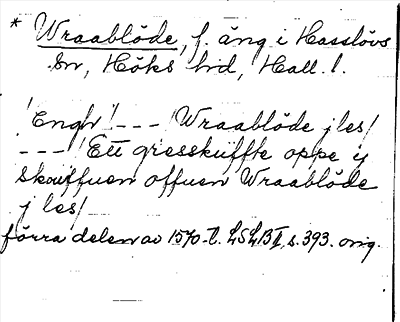 * Wraablöde, f. äng i Hasslövs
sn, Höks hd, Hall. l.
"Engh" --- Wraablöde jles/
---/ Ett gresskuffte oppe ij
Skouffuen offuen Wraablöde
j les/
förra delen av 1570-t. LSLB I, s. 393. orig.